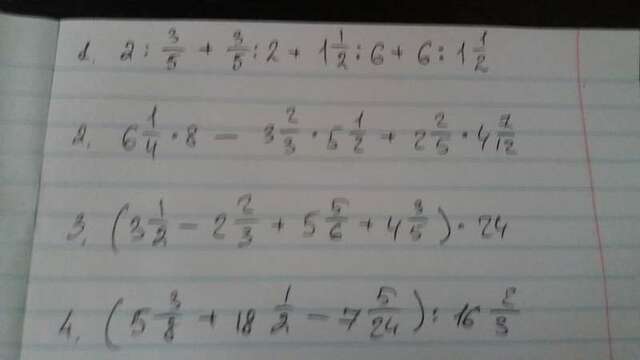 1. 2 : 3/5 + 3/5 : 2 + 1 1/2 : 6 + 6 : 1 1/2
2. 6 1/4 · 8 - 3 2/3 · 5 1/2 + 2 2/5 · 4 7/12
3. (3 1/2 - 2 2/3 + 5 5/6 + 4 3/5) · 24
4. (5 3/8 + 18 1/2 - 7 5/24) : 16 2/3